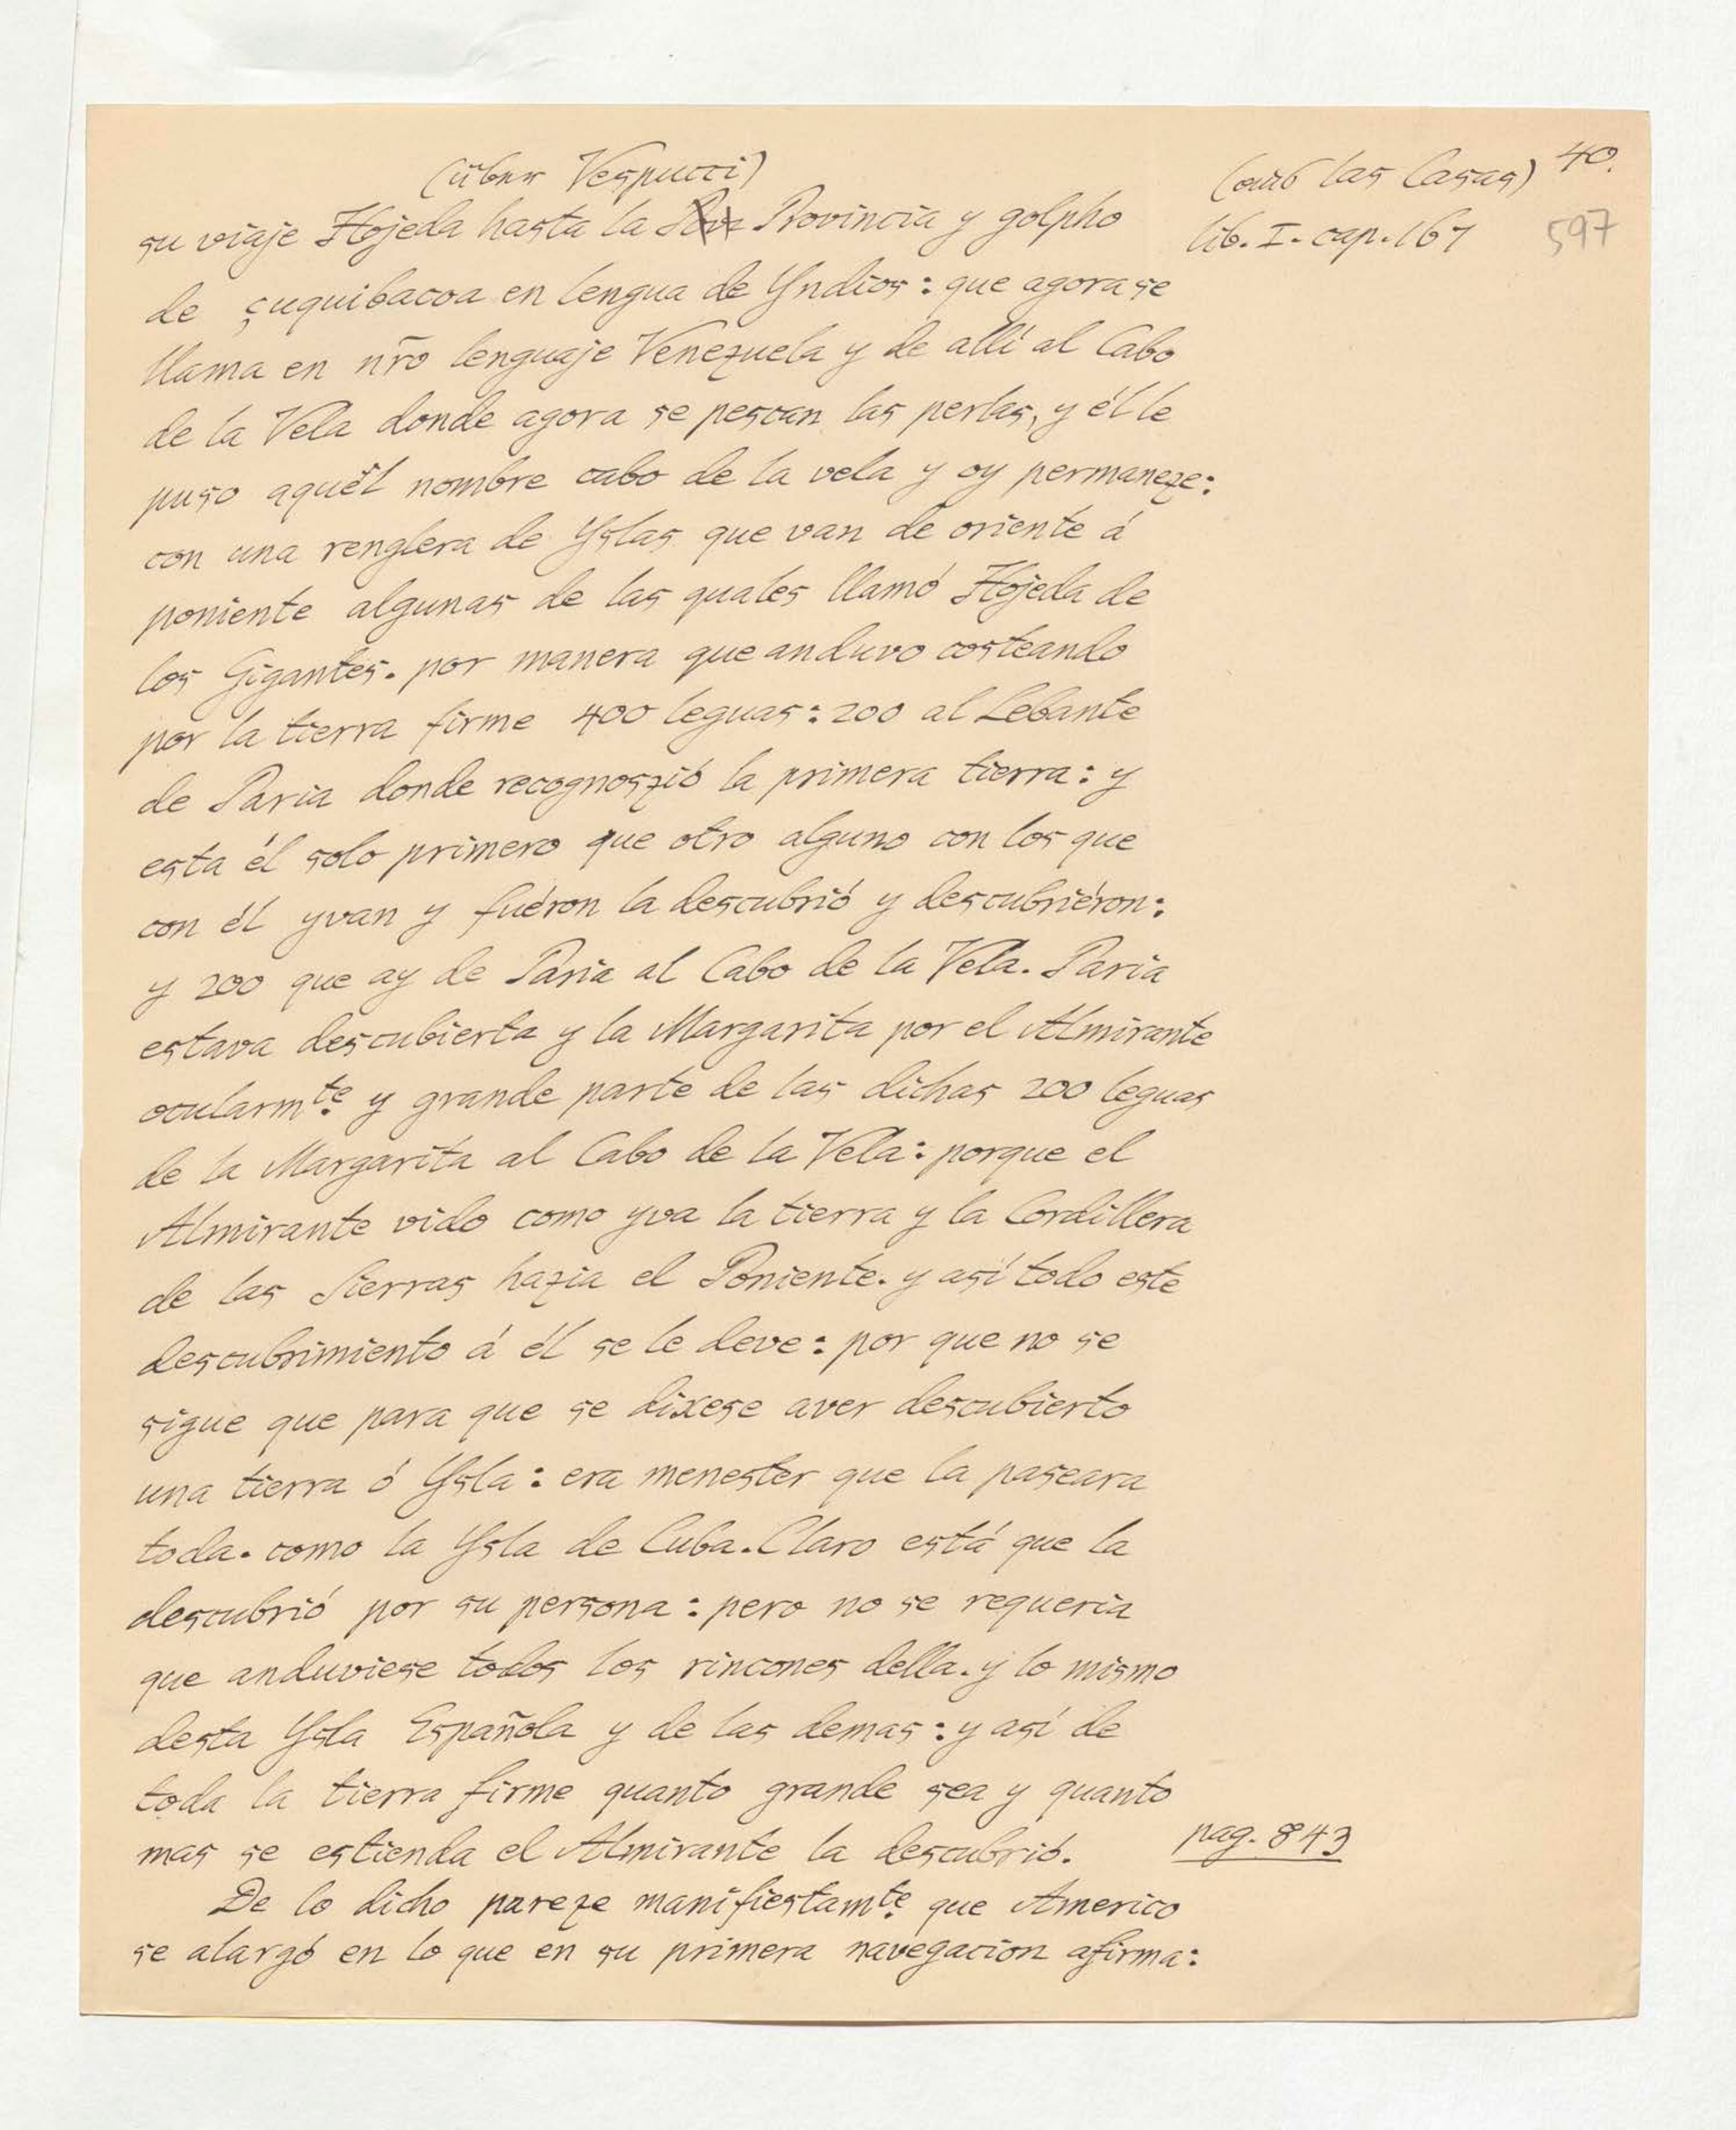 (über Vespucci)
(aus las Casas) 40.
su viaje Hojeda hasta la Provincia y golpho
lib. I. cap. 167 597
de çuquibacoa en lengua de Yndios: que agora se
llama en nr̃o lenguaje Venezuela y de allí al Cabo
de la Vela donde agora se pescan las perlas, y él le
puso aquél nombre cabo de la vela y oy permaneze:
con una renglera de Yslas que van de oriente á
poniente algunas de las quales llamó Hojeda de
los Gigantes. por manera que anduvo costeando
por la tierra firme 400 leguas: 200 al Lebante
de Paria donde recognoszió la primera tierra: y
esta él solo primero que otro alguno con los que
con él yvan y fuéron la descubrió y descubriéron:
y 200 que ay de Paria al Cabo de la Vela. Paria
estava descubierta y la Margarita por el Almirante
ocularmte. y grande parte de las dichas 200 leguas
de la Margarita al Cabo de la Vela: porque el
Almirante vido como yva la tierra y la Cordillera
de las Sierras hazia el Poniente. y así todo este
descubrimiento á él se le deve: por que no se
sigue que para que se dixese aver descubierto
una tierra ó Ysla: era menester que la paseara
toda. como la Ysla de Cuba. Claro está que la
descubrió por su persona: pero no se requeria
que anduviese todos los rincones della. y lo mismo
desta Ysla Española y de las demas: y así de
toda la tierra firme quanto grande sea y quanto
mas se estienda el Almirante la descubrió.
pag. 843
De lo dicho pareze manifiestamte. que Americo
se alargó en lo que en su primera navegacion afirma: